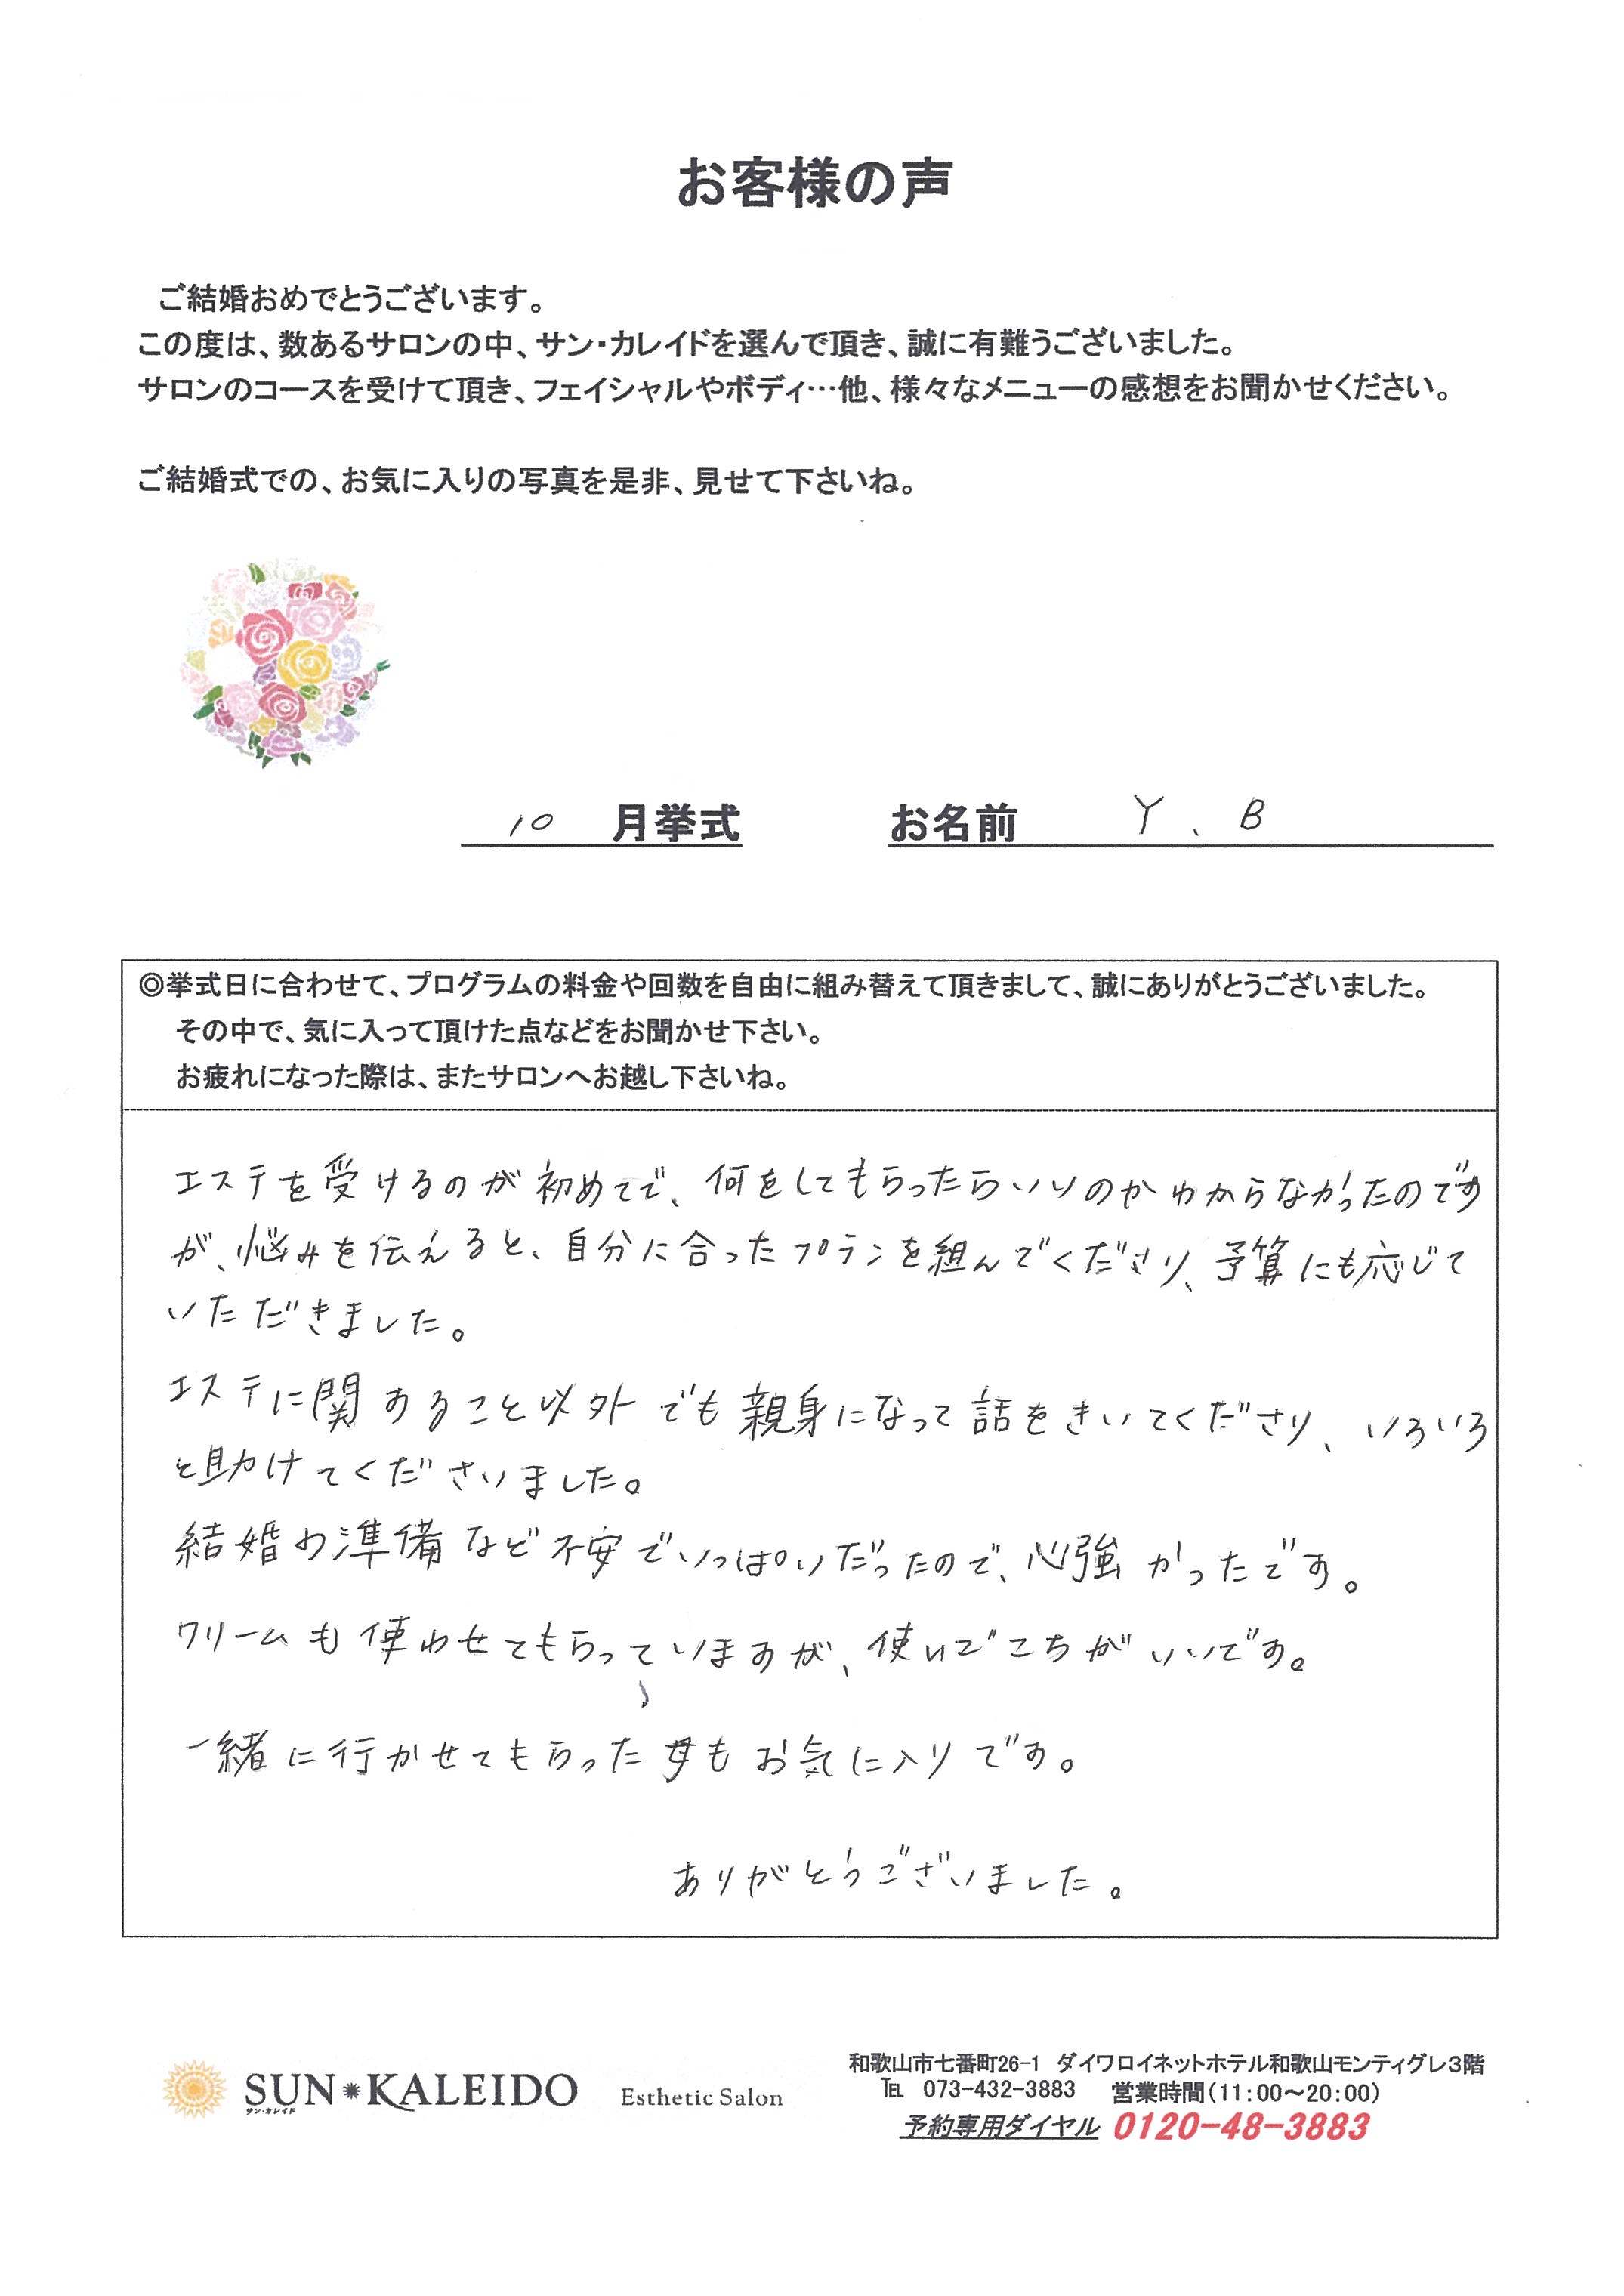 お客様の声
ご結婚おめでとうございます。
この度は、数あるサロンの中、サン・カレイドを選んで頂き、誠に有難うございました。
サロンのコースを受けて頂き、フェイシャルやボディ…他、様々なメニューの感想をお聞かせください。
ご結婚式での、お気に入りの写真を是非、見せて下さいね。
10 月挙式 お名前 Y、B
◎挙式日に合わせて、プログラムの料金や回数を自由に組み替えて頂きまして、誠にありがとうございました。
その中で、気に入って頂けた点などをお聞かせ下さい。
お疲れになった際は、またサロンへお越し下さいね。
エステを受けるのが初めてで、何をしてもらったらいいのかわからなかったのです
が、悩みを伝えると、自分に合ったプランを組んでくださり、予算にも応じて
いただきました。
エステに関すること以外でも親身になって話をきいてくださり、いろいろ
と助けてくださいました。
結婚の準備など不安でいっぱいだったので、心強かったです。
クリームも使わせてもらっていますが、使いごこちがいいです。
一緒に行かせてもらった母もお気に入りです。
ありがとうございました。
和歌山市七番町26-1 ダイワロイネットホテル和歌山モンティグレ3階
SUN KALEIDO Esthetic Salon ℡ 073-432-3883 営業時間(11:00～20:00)
サン・カレイド
予約専用ダイヤル 0120-48-3883